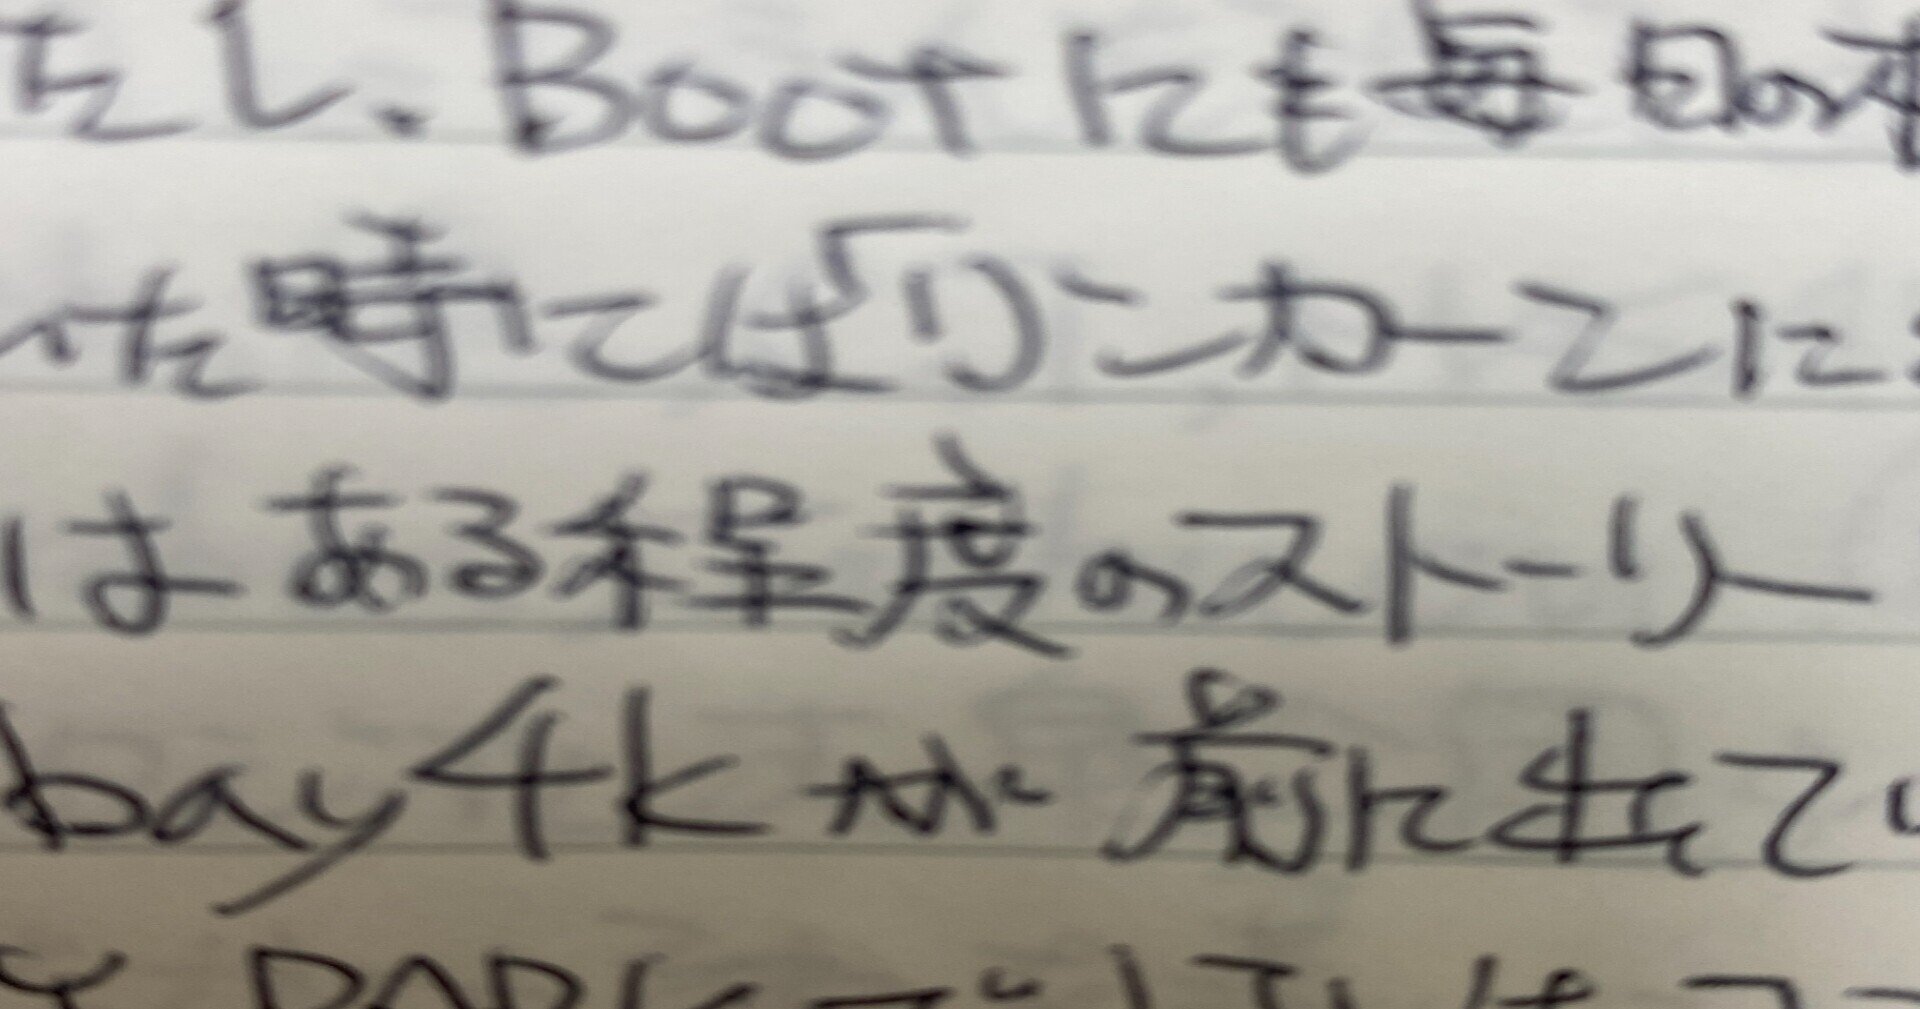 たし、Bootにも毎日の
った時には「リンカーンに
はある程度のストーリー
bay4kが前に出てい
PARKで